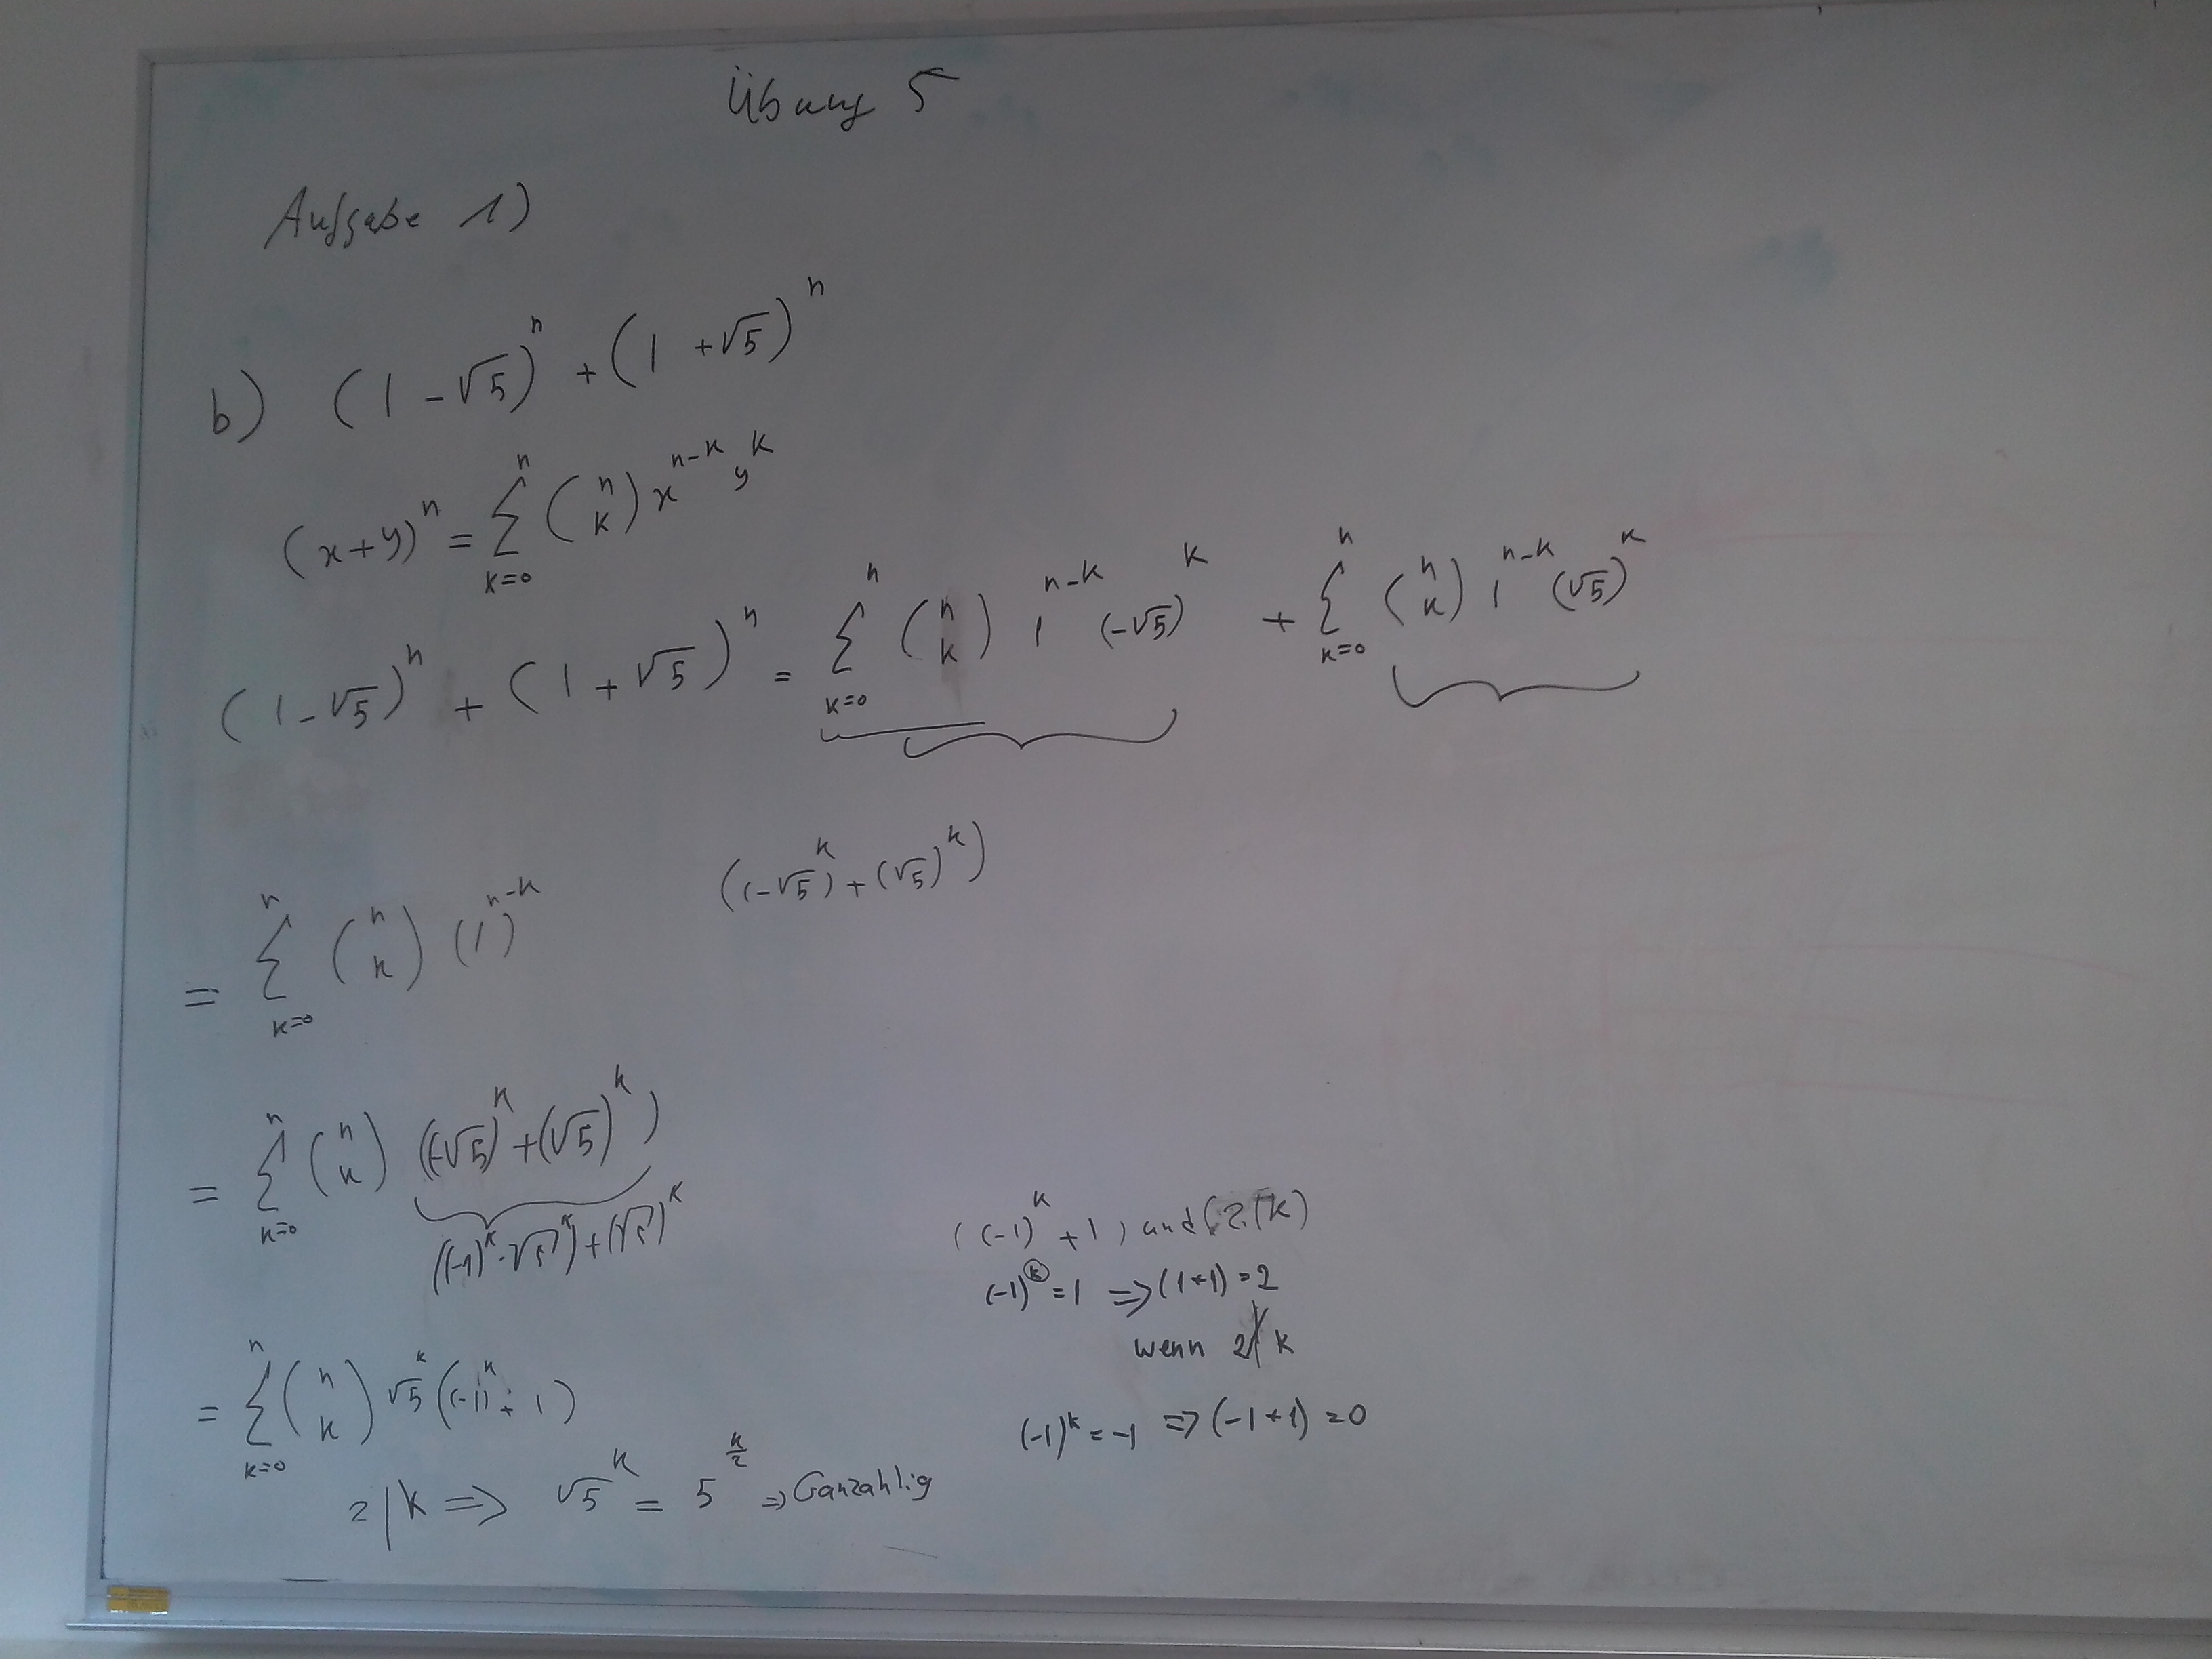 Übung 5
Aufgabe 1)
b) (1 - √5)^n + (1 + √5)^n
(x+y)^n = ∑_{k=0}^{n} (n k) x^{n-k} y^k
(1 - √5)^n + (1 + √5)^n = ∑_{k=0}^{n} (n k) 1^{n-k} (-√5)^k + ∑_{k=0}^{n} (n k) 1^{n-k} (√5)^k
= ∑_{k=0}^{n} (n k) (1)^{n-k} ((-√5)^k + (√5)^k)
= ∑_{k=0}^{n} (n k) ((-√5)^k + (√5)^k)
((-1)^k · √5^k) + (√5)^k
= ∑_{k=0}^{n} (n k) √5^k ((-1)^k + 1)
2 | k => √5^k = 5^{k/2} => Ganzahlig
((-1)^k + 1) and (2 | k)
(-1)^k = 1 => (1+1) = 2
wenn 2∤k
(-1)^k = -1 => (-1+1) = 0